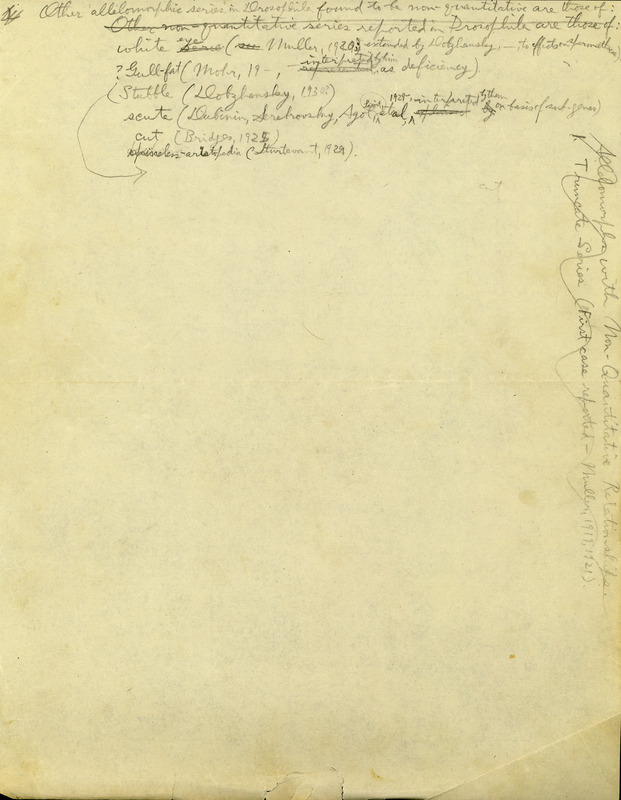 Other allelomorphic series in Drosophila found to be non-quantitative are those of:
Other non-quantitative series reported in Drosophila are those of:
white eye series (see Muller, 1920; extended by Dobzhansky, — to effects on spermatheca).
? Gull-fat (Mohr, 19-, represented interpreted by him as deficiency).
(Stubble (Dobzhansky, 1930?)
scute (Dubinin, Serebrovsky, Agol, et al, 1929, - interpreted by them on basis of sub-genes)
cut (Bridges, 1925)
spineless-aristapedia (Sturtevant, 1929).
Allelomorphs with Non-Quantitative Relationships.
Truncate Series (First case reported - Muller, 1919, 1921).